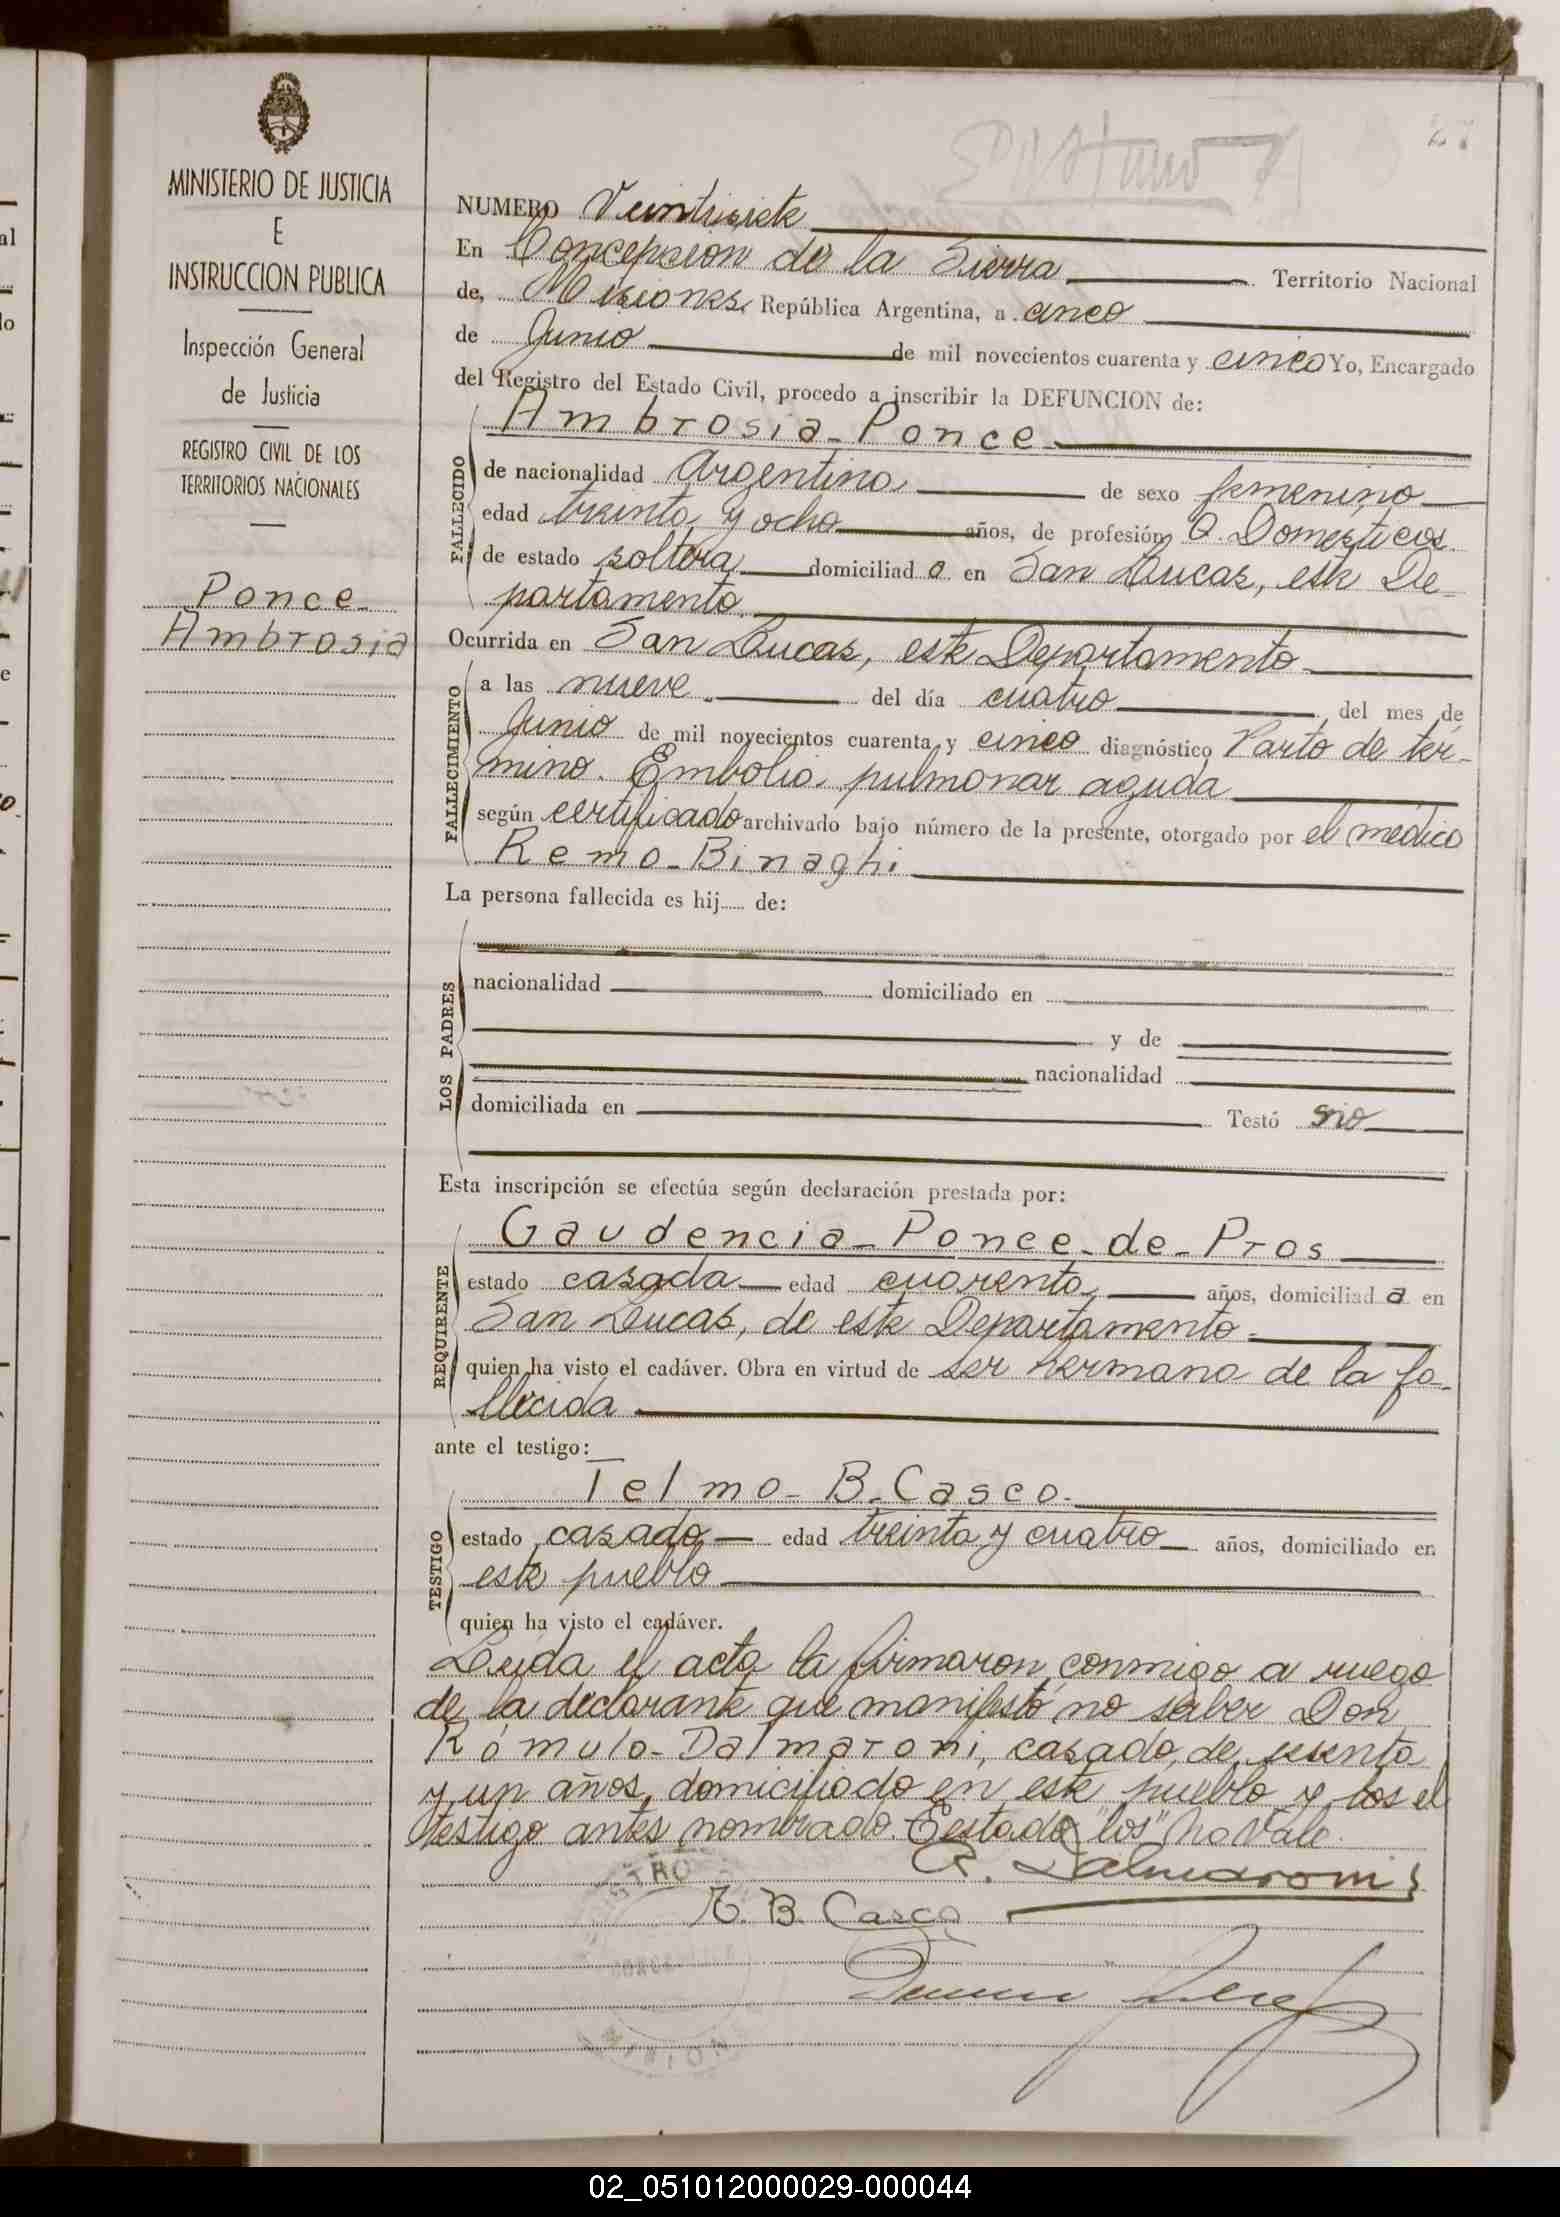 27
MINISTERIO DE JUSTICIA
E
INSTRUCCION PUBLICA
Inspección General
de Justicia
REGISTRO CIVIL DE LOS
TERRITORIOS NACIONALES
Ponce
Ambrosia
NUMERO Veintisiete
En Concepcion de la Sierra Territorio Nacional
de, Misiones, República Argentina, a cinco
de Junio de mil novecientos cuarenta y cinco Yo, Encargado
del Registro del Estado Civil, procedo a inscribir la DEFUNCION de:
FALLECIDO
Ambrosia - Ponce
de nacionalidad Argentina de sexo femenino
edad treinta y ocho años, de profesión Q. Domesticos
de estado soltera domiciliado en San Lucas, este De-
partamento
Ocurrida en San Lucas, este Departamento
FALLECIMIENTO
a las nueve del día cuatro del mes de
Junio de mil novecientos cuarenta y cinco diagnóstico Parto de ter-
mino. Embolia pulmonar aguda
según certificado archivado bajo número de la presente, otorgado por el medico
Remo - Binaghi
La persona fallecida es hij..... de:
LOS PADRES
nacionalidad domiciliado en
y de
nacionalidad
domiciliada en Testó no
Esta inscripción se efectúa según declaración prestada por:
REQUIRENTE
Gaudencia - Ponce - de - Pros
estado casada edad cuarenta años, domiciliada en
San Lucas, de este Departamento
quien ha visto el cadáver. Obra en virtud de ser hermana de la fa-
llecida
ante el testigo:
TESTIGO
Telmo - B. Casco
estado casado edad treinta y cuatro años, domiciliado en
este pueblo
quien ha visto el cadáver.
Leida el acta la firmaron conmigo a ruego
de la declarante que manifestó no saber Don
Rómulo - Dalmaroni, casado, de sesenta
y un años, domiciliado en este pueblo y los el
testigo antes nombrado. Testado "los" No Vale.
R. Dalmaroni
T. B. Casco
02_051012000029-000044